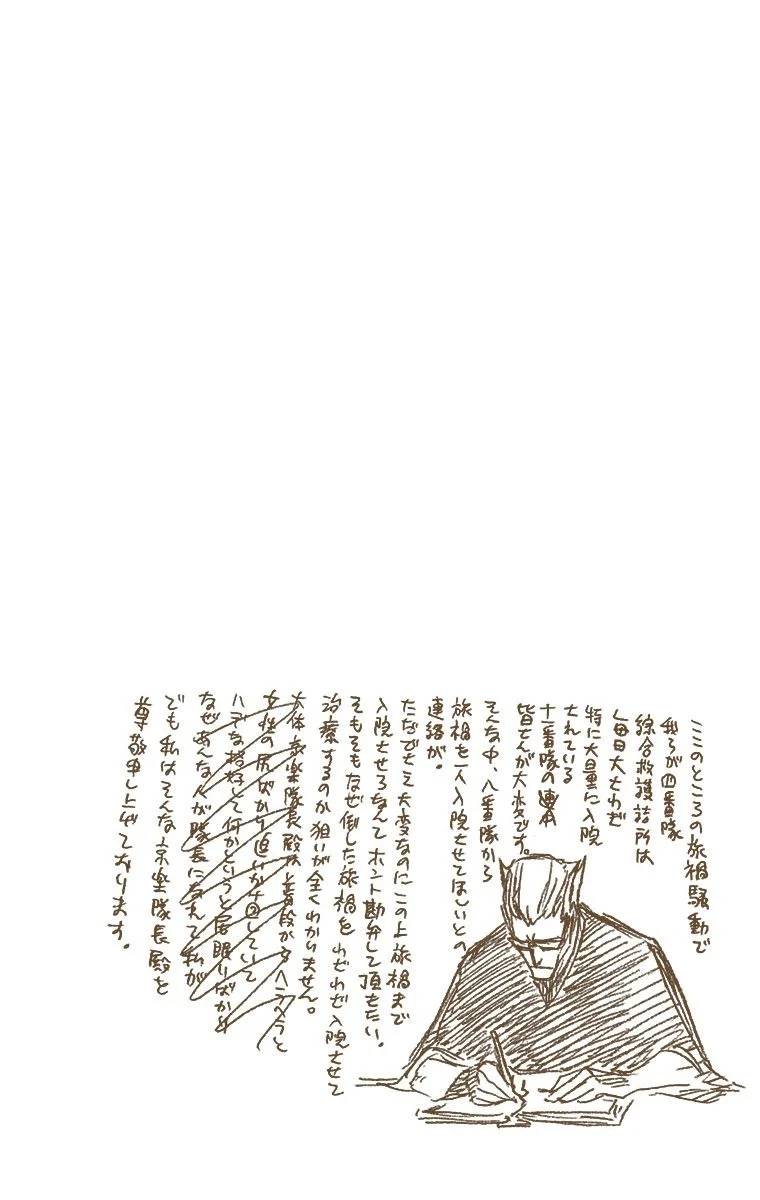 ここのところの旅禍騒動で
我らが四番隊
綜合救護詰所は
毎日大さわぎ
特に大量に入院
されている
十一番隊の
皆さんが大変です。
そんな中、八番隊から
旅禍を一人入院させてほしいとの
連絡が。
ただでさえ大変なのにこの上旅禍まで
入院させろなんてホント勘弁して頂きたい。
そもそもなぜ倒した旅禍をわざわざ入院させて
治療するのか狙いが全くわかりません。
大体京楽隊長殿は普段からヘラヘラと
女性の尻ばかり追いかけ回していて
ハデな格好して何かというと居眠りばかり
なぜあんな人が隊長に なれて私が
でも私はそんな京楽隊長殿を
尊敬申し上げております。